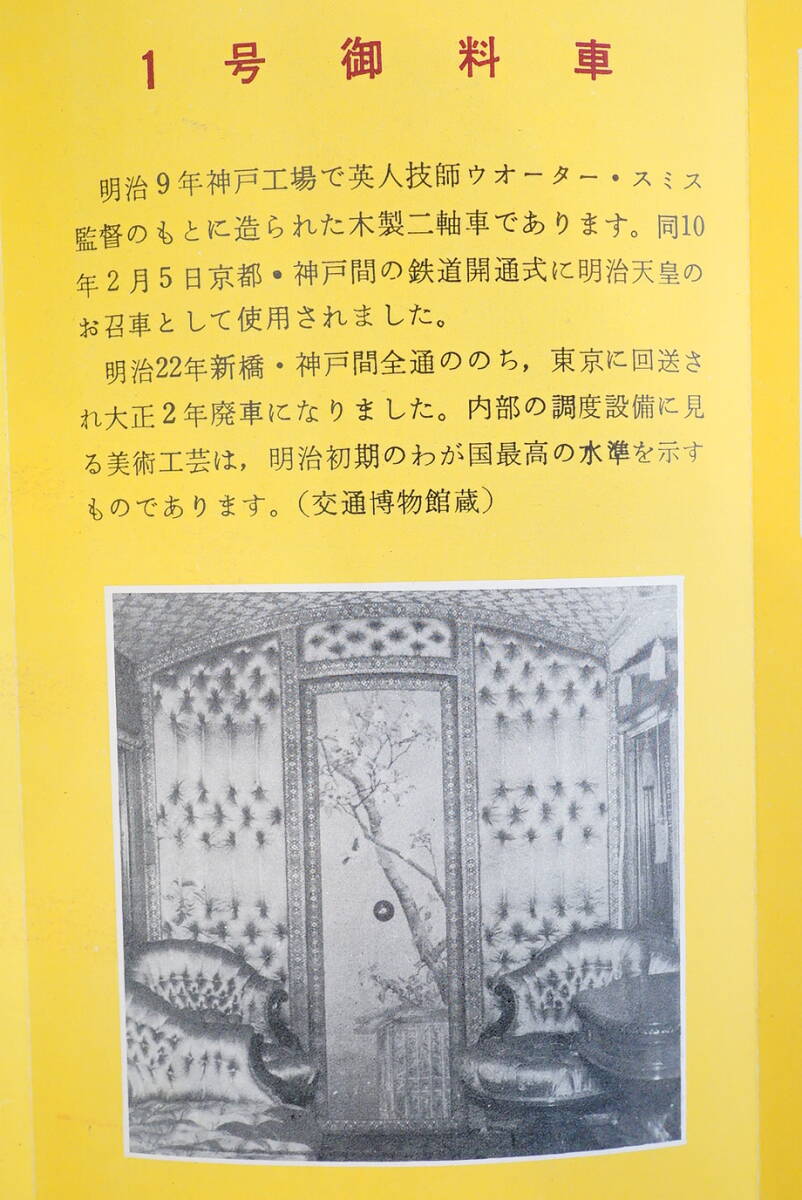 1号御料車
明治9年神戸工場で英人技師ウオーター・スミス
監督のもとに造られた木製二軸車であります。同10
年2月5日京都・神戸間の鉄道開通式に明治天皇の
お召車として使用されました。
明治22年新橋・神戸間全通ののち，東京に回送さ
れ大正2年廃車になりました。内部の調度設備に見
る美術工芸は，明治初期のわが国最高の水準を示す
ものであります。（交通博物館蔵）